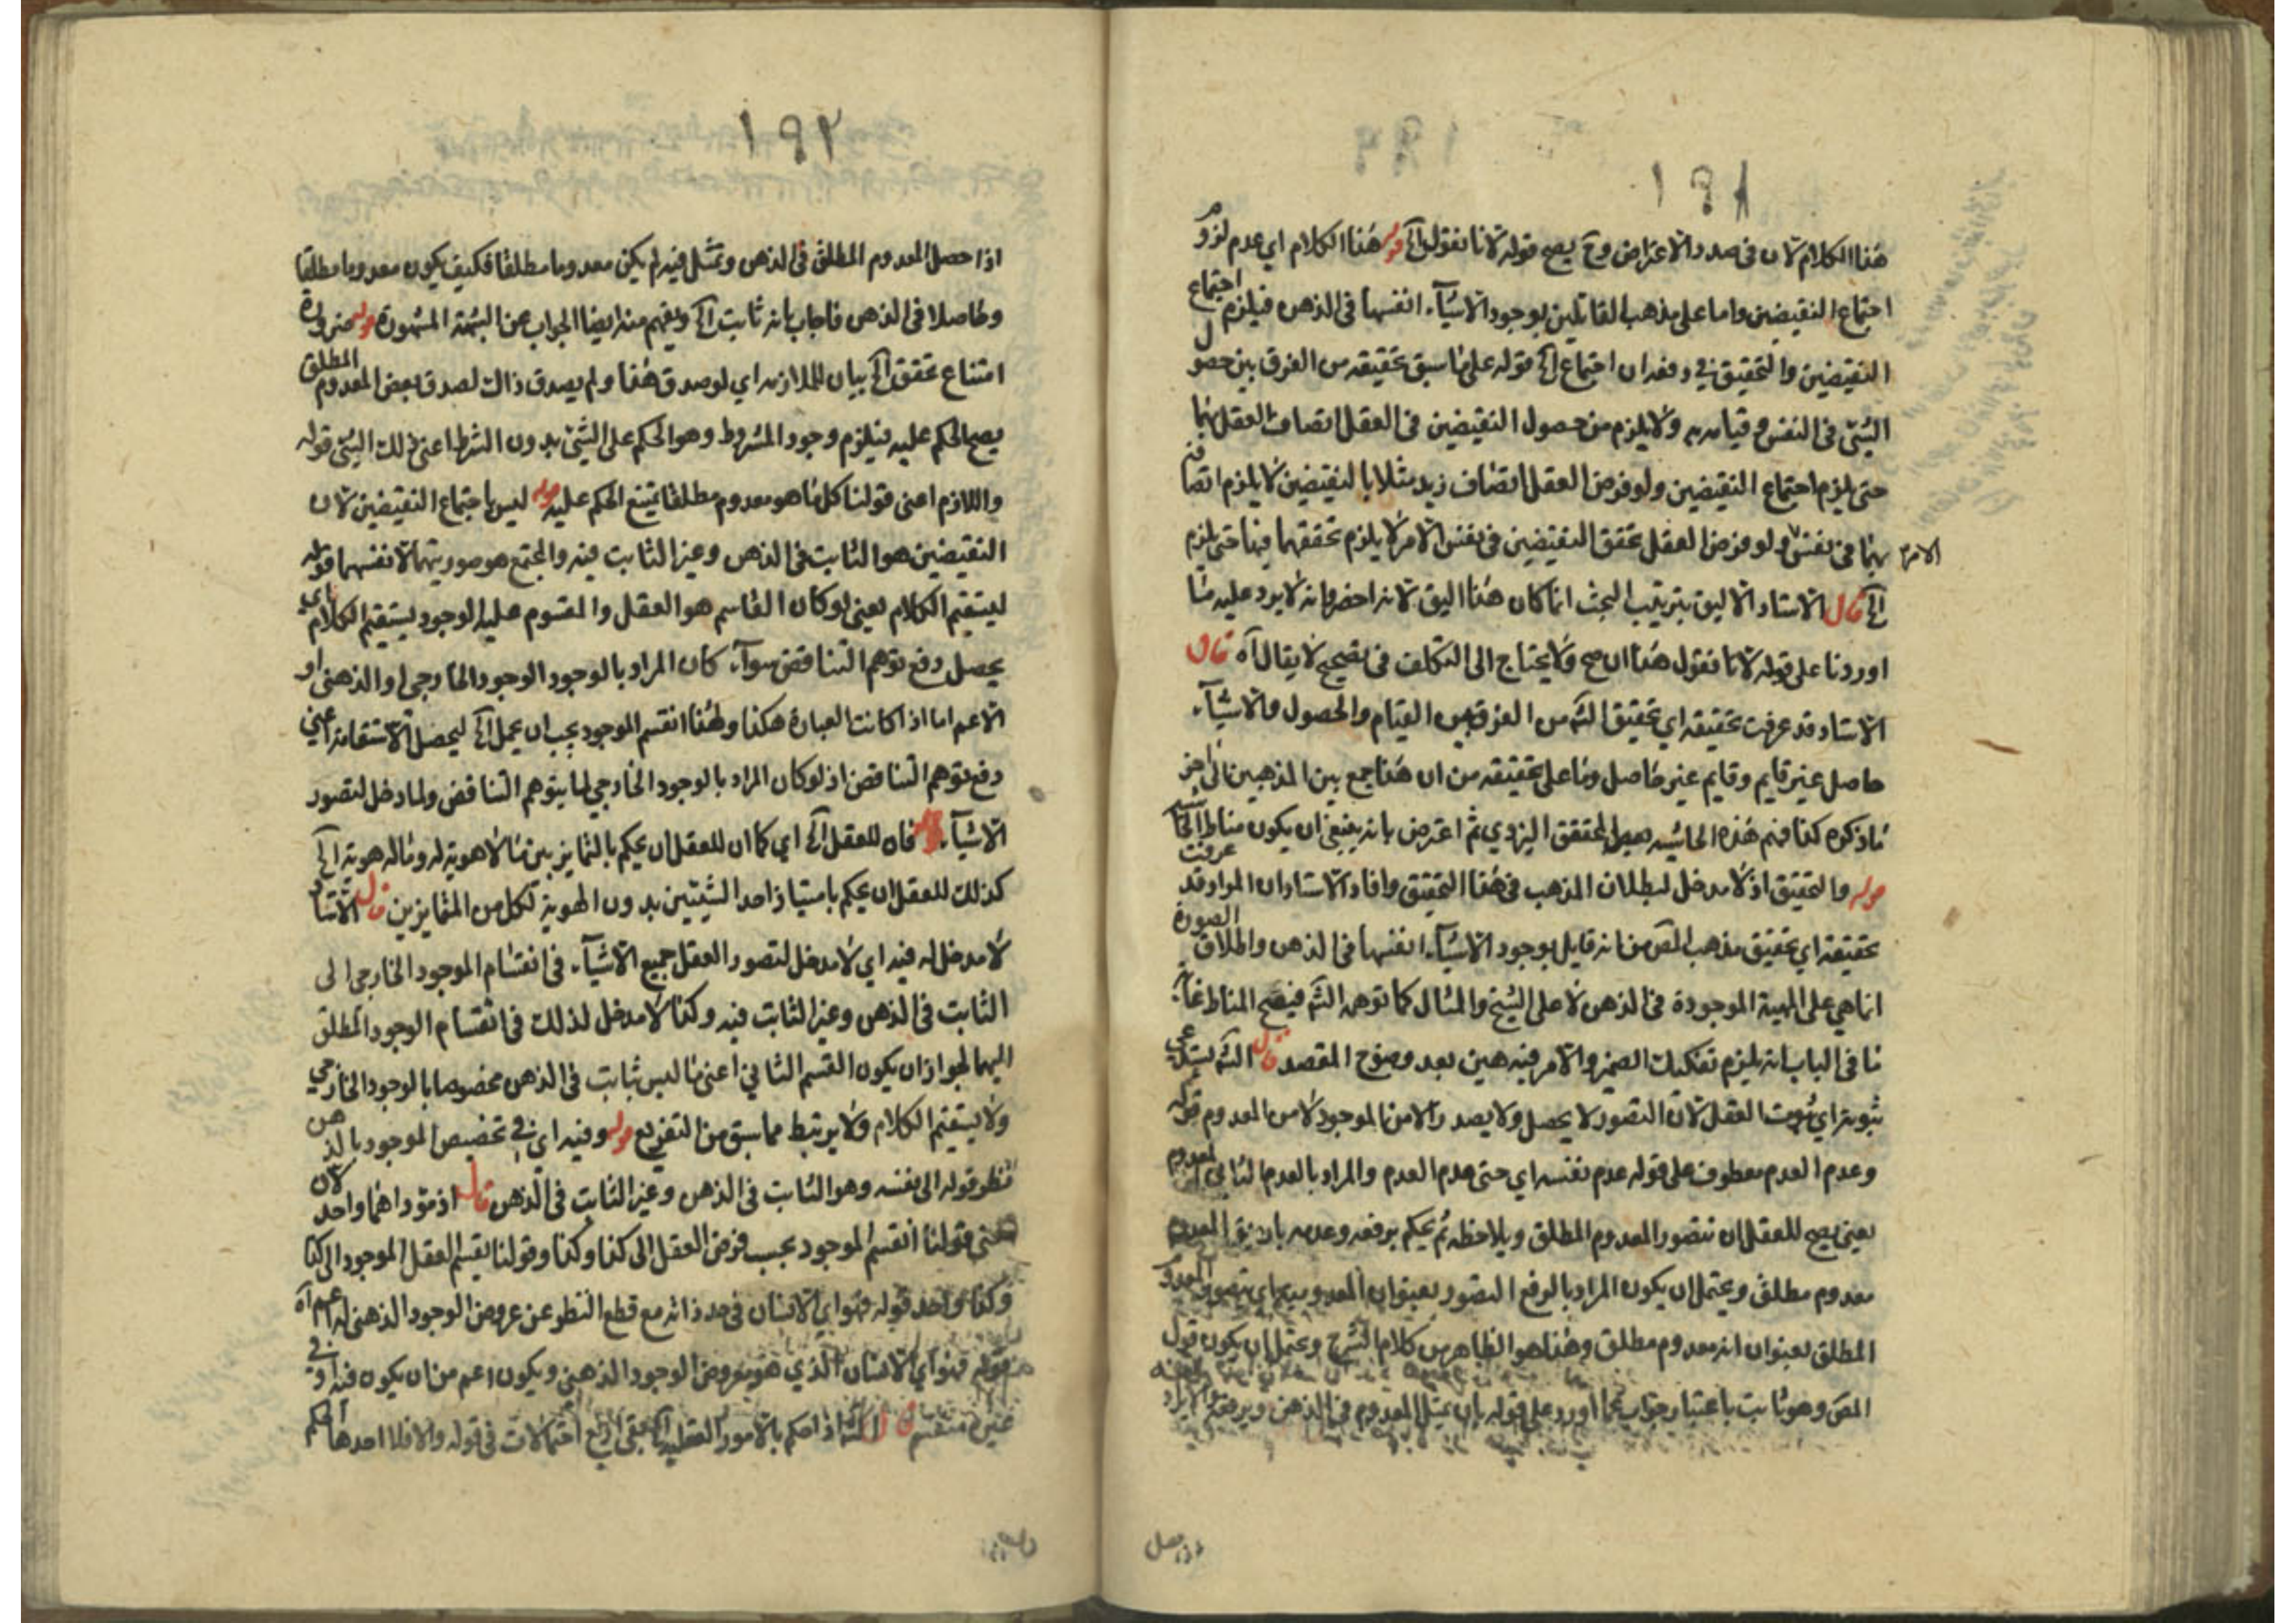 ١٩١
هذا الكلام لان فى صدد الاعتراض وح يصح قوله لانا نقول الخ قوله هذا الكلام اى عدم لزوم
اجتماع النقيضين واما على مذهب القائلين بوجود الاشياء انفسها فى الذهن فيلزم اجتماع
النقيضين والتحقيق فى دفعه ان اجتماع الخ قوله على ما سبق تحقيقه من الفرق بين حصول
الشئ فى النفس و قيامه به ولا يلزم من حصول النقيضين فى العقل اتصاف العقل بهما
حتى يلزم اجتماع النقيضين ولو فرض العقل اتصاف زيد مثلا بالنقيضين لا يلزم اتصافه
بهما فى نفس الامر ولو فرض العقل تحقق النقيضين فى نفس الامر لا يلزم تحققهما فيها حتى يلزم
الخ قال الاستاد الاليق بترتيب البحث انما كان هذا اليق لانه احضر وانه لا يرد عليه ما
اوردنا على قوله لانا نقول هذا ان صح ولا يحتاج الى التكلف فى تصحيح لا يقال اه قال
الاستاد قد عرفت تحقيقه اي تحقيق الشه من الفرق بين القيام والحصول والاشياء
حاصل غير قايم وقايم غير حاصل وما على تحقيقه من ان هذا جمع بين المذهبين الى اخر
ما ذكره كذا فهم هذه الحاشيه بعض المحقق اليزدي ثم اعترض بانه ينبغى ان يكون مناط
قوله والتحقيق اذ لا مدخل لبطلان المذهب فى هذا التحقيق وافاد الاستاد ان المراد قد عرفت
تحقيقه اي تحقيق مذهب المص من انه قايل بوجود الاشياء انفسها فى الذهن واطلاق الصورة
انما هي على المهية الموجودة فى الذهن لا على الشبح والمثال كما توهمه الشه فيصح المناط غاية
ما فى الباب انه يلزم تفكيك الضمير والامر فيه هين بعد وضوح المقصد قال الشه يستدعى
ثبوته اي ثبوت العقل لان التصور لا يحصل ولا يصدر الا من الموجود لا من المعدوم قوله
وعدم العدم معطوف على قوله عدم نفسه اي حتى عدم العدم والمراد بالعدم الثانى المعدوم
يعنى يصح للعقل ان تتصور المعدوم المطلق ويلاحظه ثم يحكم برفعه وعدمه بان يق المعدوم
معدوم مطلق ويحتمل ان يكون المراد بالرفع التصور بعنوان المعدومية اي يتصور المعدوم
المطلق بعنوان انه معدوم مطلق وهذا هو الظاهر من كلام الشرح ويحتمل ان يكون قول
المص وهو ثابت باعتبار جواب عما اورد على قوله بان يتمثل المعدوم فى الذهن ويرفعه
اذا حصل
١٩٢
اذا حصل المعدوم المطلق فى الذهن وتمثل فيه لم يكن معدوما مطلقا فكيف يكون معدوما مطلقا
وحاصلا فى الذهن فاجاب بانه ثابت الخ ويفهم منه ايضا الجواب عن الشبهة المشهورة قوله ضرورة
امتناع تحقق الخ بيان للملازمه اي لو صدق هذا ولم يصدق ذاك لصدق بعض المعدوم المطلق
يصح الحكم عليه فيلزم وجود المشروط وهو الحكم على الشئ بدون الشرط اعنى ذلك الشئ قوله
واللازم اعنى قولنا كل ما هو معدوم مطلقا يمتنع الحكم عليه قوله ليس باجتماع النقيضين لان
النقيضين هو الثابت فى الذهن وغير الثابت فيه والمجتمع هو صورتيهما لا نفسهما قوله
ليستقيم الكلام يعنى لو كان القاسم هو العقل والمقسوم عليه الوجود يستقيم الكلام اي
يحصل دفع توهم التناقض سواء كان المراد بالوجود الوجود الخارجى او الذهنى او
الاعم اما اذا كانت العبارة هكذا ولهذا انقسم الموجود يجب ان يحمل الخ ليحصل الاستقامة اعنى
دفع توهم التناقض اذ لو كان المراد بالوجود الخارجي لما يتوهم التناقض ولما دخل لتصور
الاشياء قوله فان للعقل الخ اي كما ان للعقل ان يحكم بالتمايز بين ما لا هوية له وما له هوية الخ
كذلك للعقل ان يحكم بامتياز احد الشيئين بدون الهوية لكل من المتمايزين قال الاستاد
لا مدخل له فيه اي لا مدخل لتصور العقل جميع الاشياء فى انقسام الموجود الخارجى الى
الثابت فى الذهن وغير الثابت فيه وكذا لا مدخل لذلك فى انقسام الوجود المطلق
اليهما لجواز ان يكون القسم الثاني اعنى ما ليس ثابت فى الذهن مخصوصا بالوجود الخارجي
ولا يستقيم الكلام ولا يرتبط مما سبق من التفريع قوله وفيه اي فى تخصيص الموجود بالذهن
نظر قوله الى نفسه وهو الثابت فى الذهن وغير الثابت فى الذهن قال اذ مؤداهما واحد لان
معنى قولنا انقسم الموجود بحسب فرض العقل الى كذا وكذا وقولنا يقسم العقل الموجود الى كذا
وكذا واحد قوله فهو اي الانسان فى حد ذاته مع قطع النظر عن عروض الوجود الذهنى له اعم اه
قوله فهو اي الانسان الذي هو معروض الوجود الذهنى ويكون اعم من ان يكون
غير منقسم قال الشه اذا حكم بالامور العقليه الخ بقى اربع احتمالات فى قوله والا فلا احدها